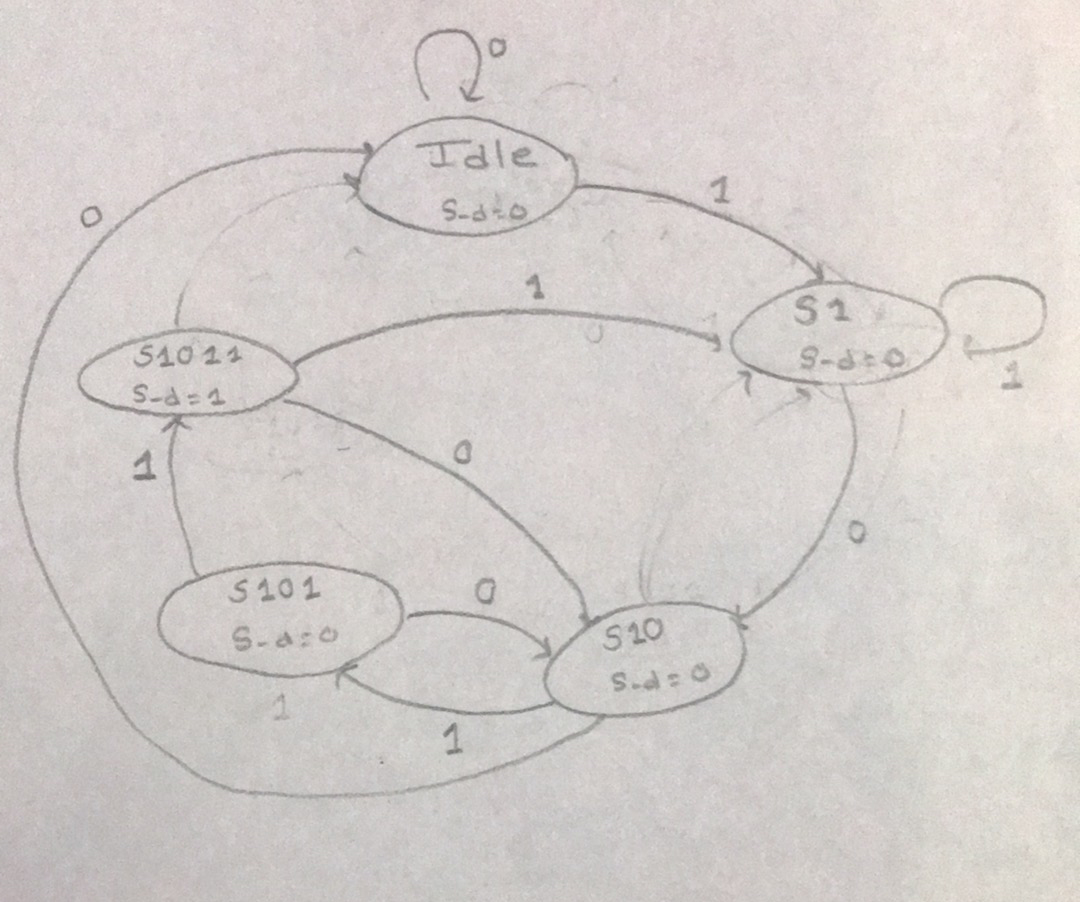 0
Idle
S-d=0
1
0
1
S1
S-d=0
1
S1011
S-d=1
0
1
0
S101
S-d=0
0
S10
S-d=0
1
1